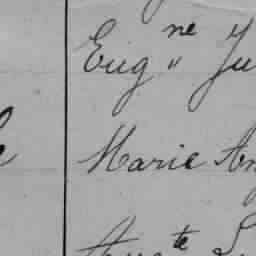 Eug ne " Ju
Marie An
Aug te L